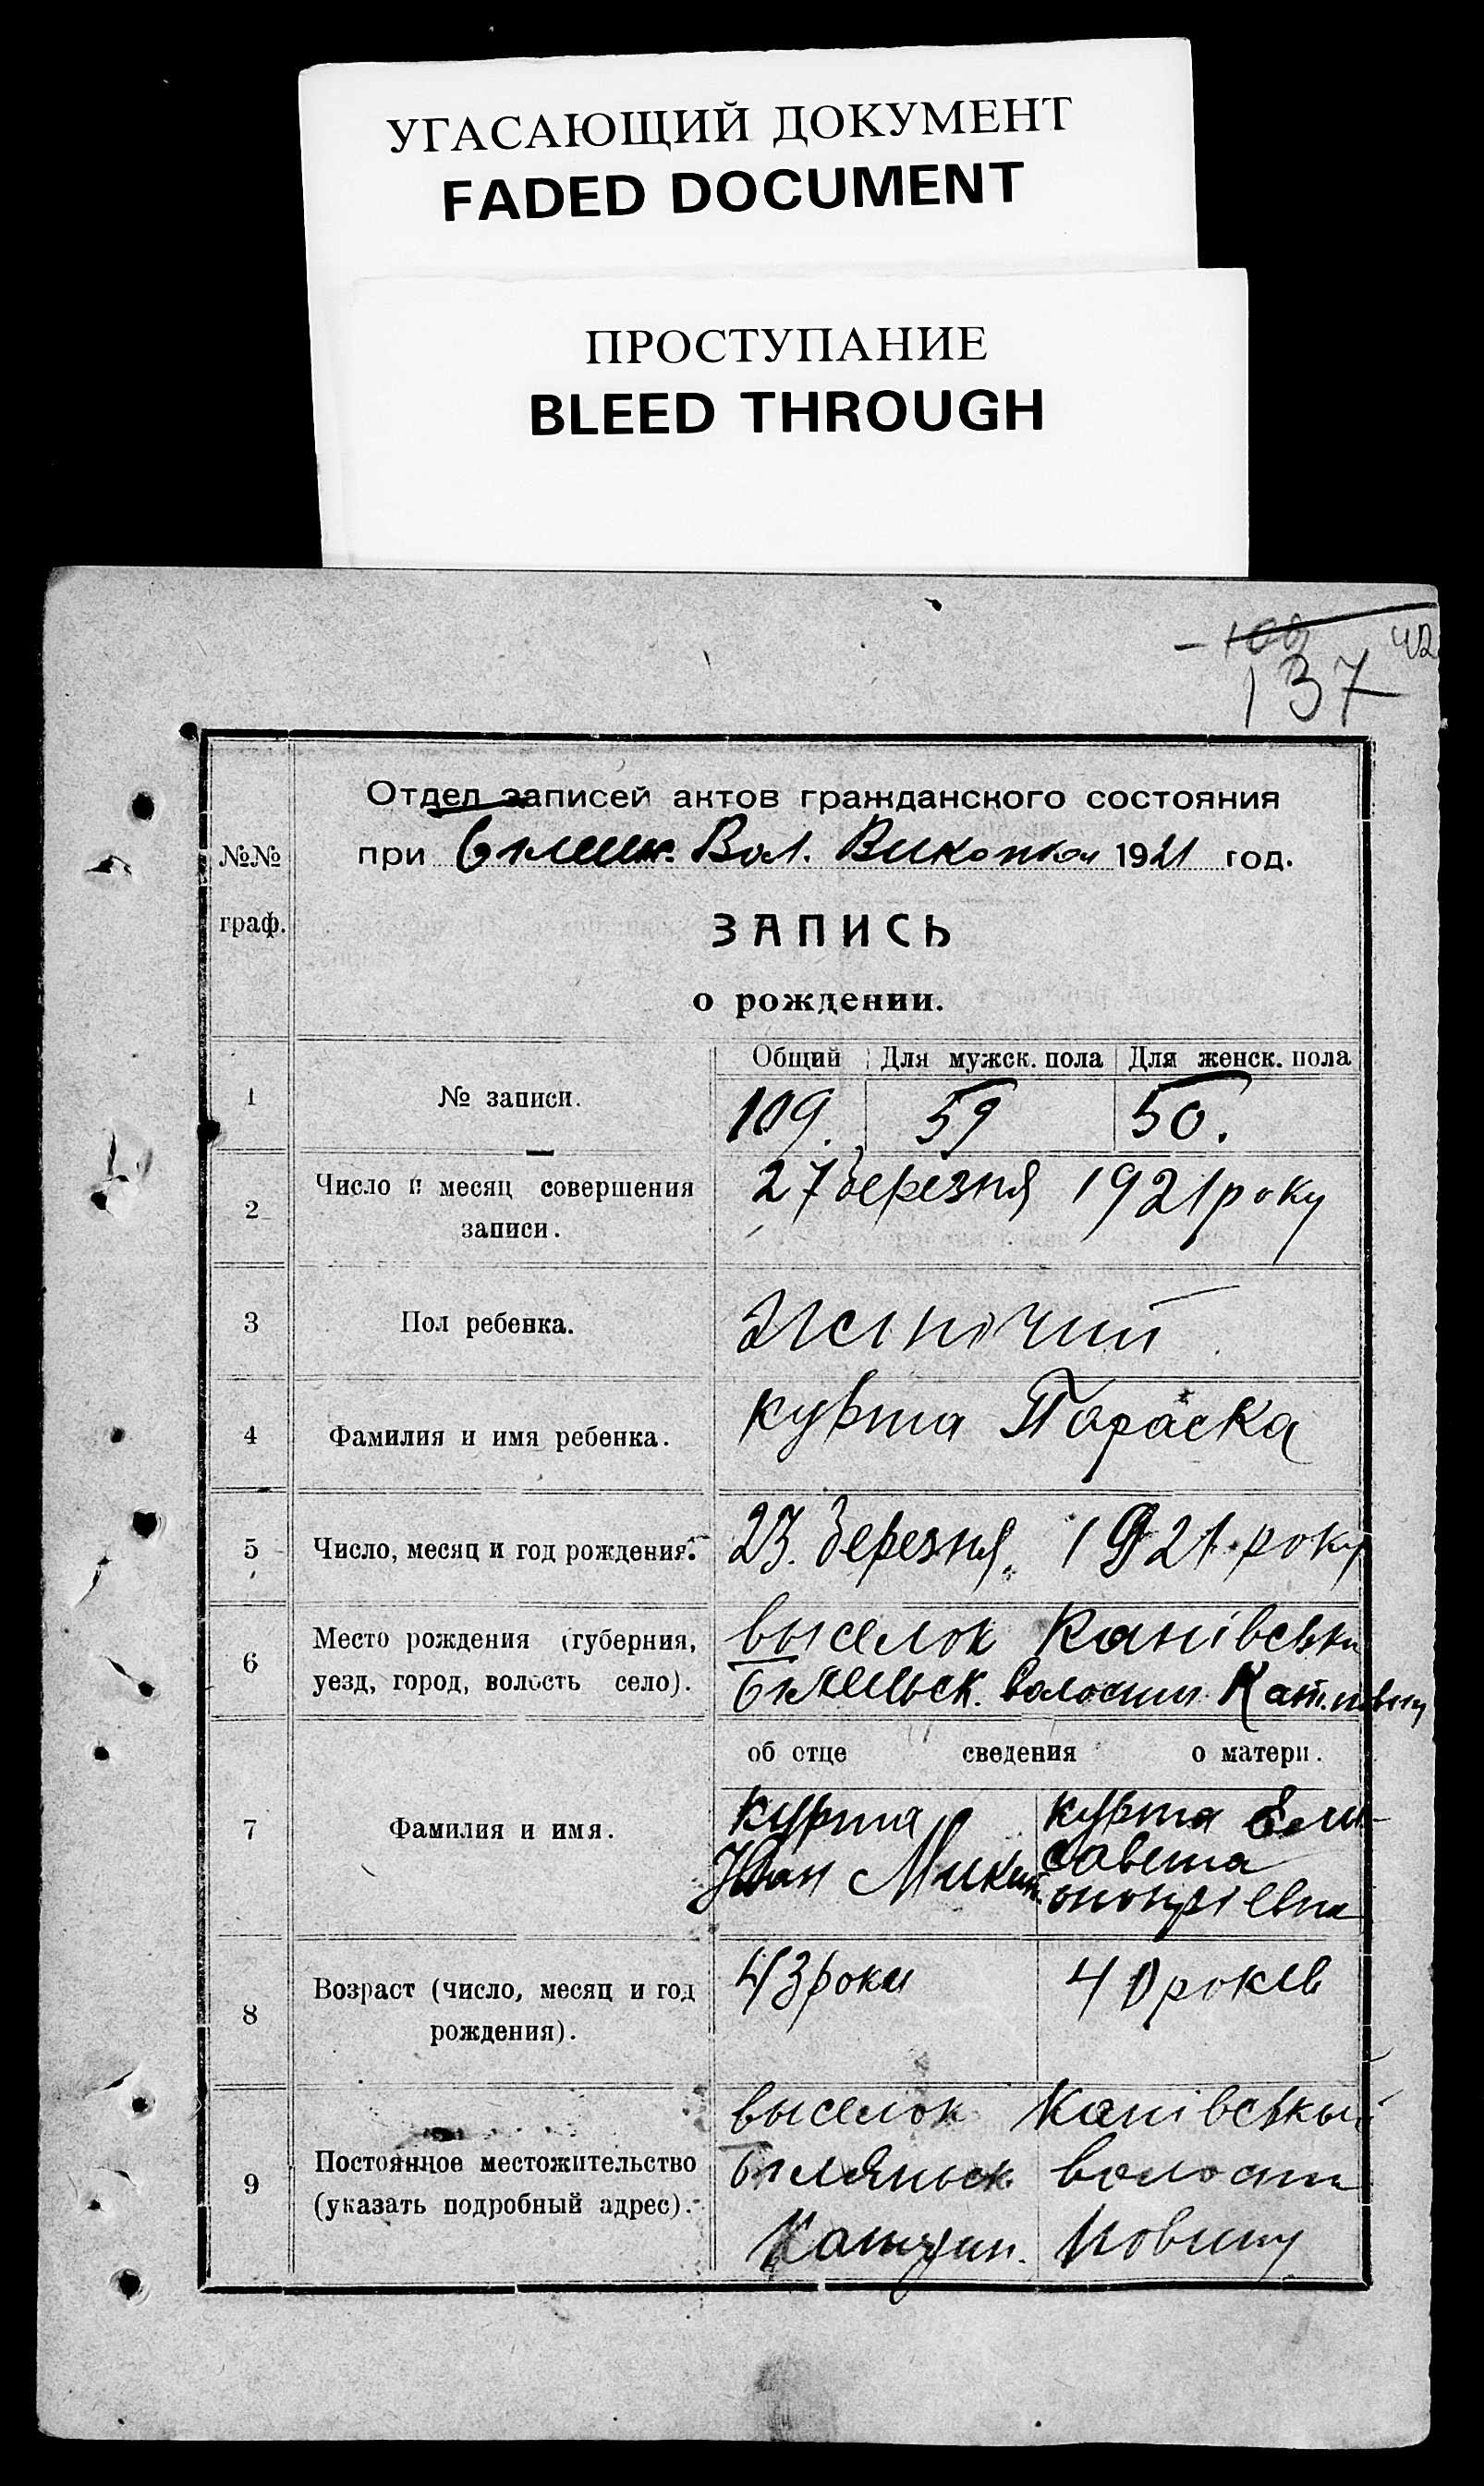 УГАСАЮЩИЙ ДОКУМЕНТ
FADED DOCUMENT
ПРОСТУПАНИЕ
BLEED THROUGH
42
137
Отдел записей актов гражданского состояния
№№ при Вол. 1921 год.
граф.
ЗАПИСЬ
о рождении.
Общий Для мужск. пола Для женск. пола
1 № записи. 109. 59 50.
2 Число и месяц совершения записи. 27 березня 1921 року
3 Пол ребенка. жіночий
4 Фамилия и имя ребенка. Курта Параска
5 Число, месяц и год рождения. 23. березня 1921 року
6 Место рождения (губерния, выселок Канівськи
уезд, город, волость село). волости
об отце сведения о матери.
7 Фамилия и имя. Курта Курта Ели-
Іван Микит. савета
8 Возраст (число, месяц и год рождения). 43 роки 40 років
9 Постоянное местожительство (указать подробный адрес). выселок Канівський
волости
повіту